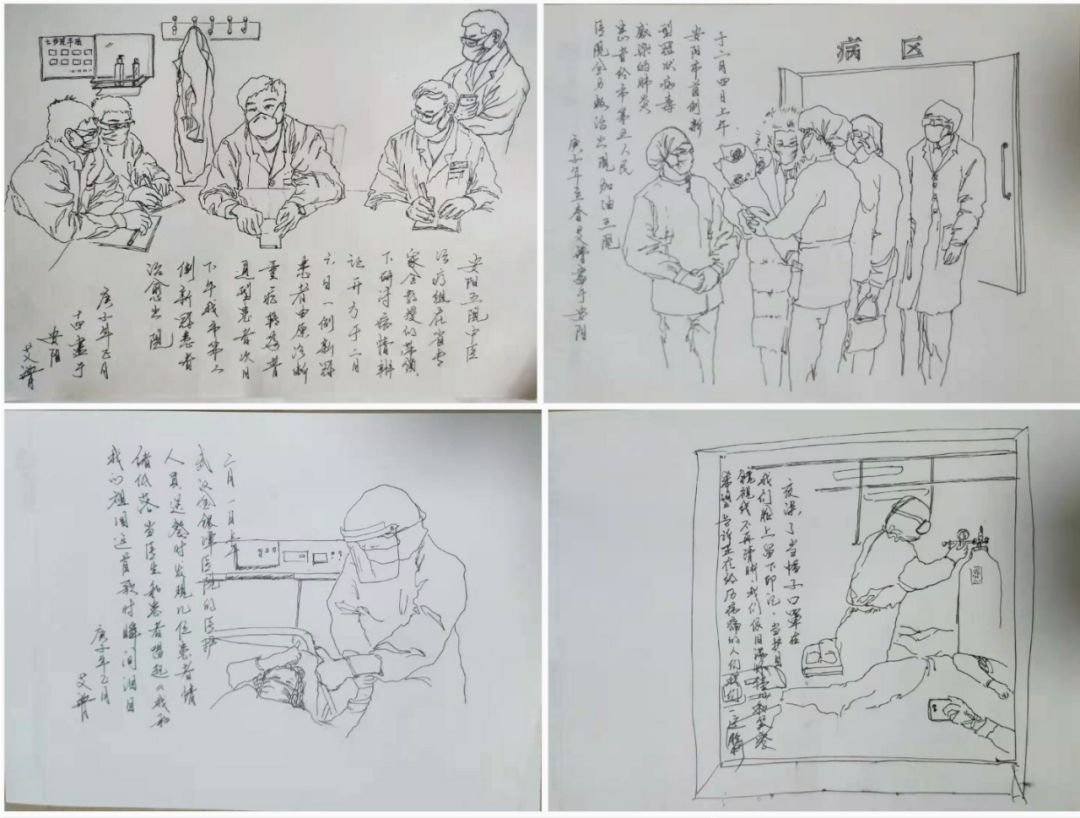 七步洗手法
安阳五院中医
治疗组在省专
家全教授的带领
下研讨病情辨
证开方于二月
六日一例新冠
患者由原诊断
重症转为普
通型患者次日
下午我市第二
例新冠患者
治愈出院
庚子年正月
十四画于
安阳
艾
病区
于二月四日上午
安阳市首例新
型冠状病毒
感染的肺炎
患者给市第五人民
医院全力救治出院加油五院
庚子年立春日艾画于安阳
二月一日上午
武汉金银潭医院的医护
人员送餐时发现几位患者情
绪低落当医生和患者唱起《我和
我的祖国这首歌时瞬间泪目
庚子年正月
艾
夜深了当帽子口罩在
我们脸上留下印记,当护目
镜视线不再清晰,我们依目满怀信心和笑容
希望告诉正在经历病痛的人们我们一定胜利